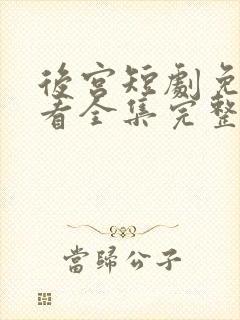 後宮短劇免
看全集完整
當歸公子